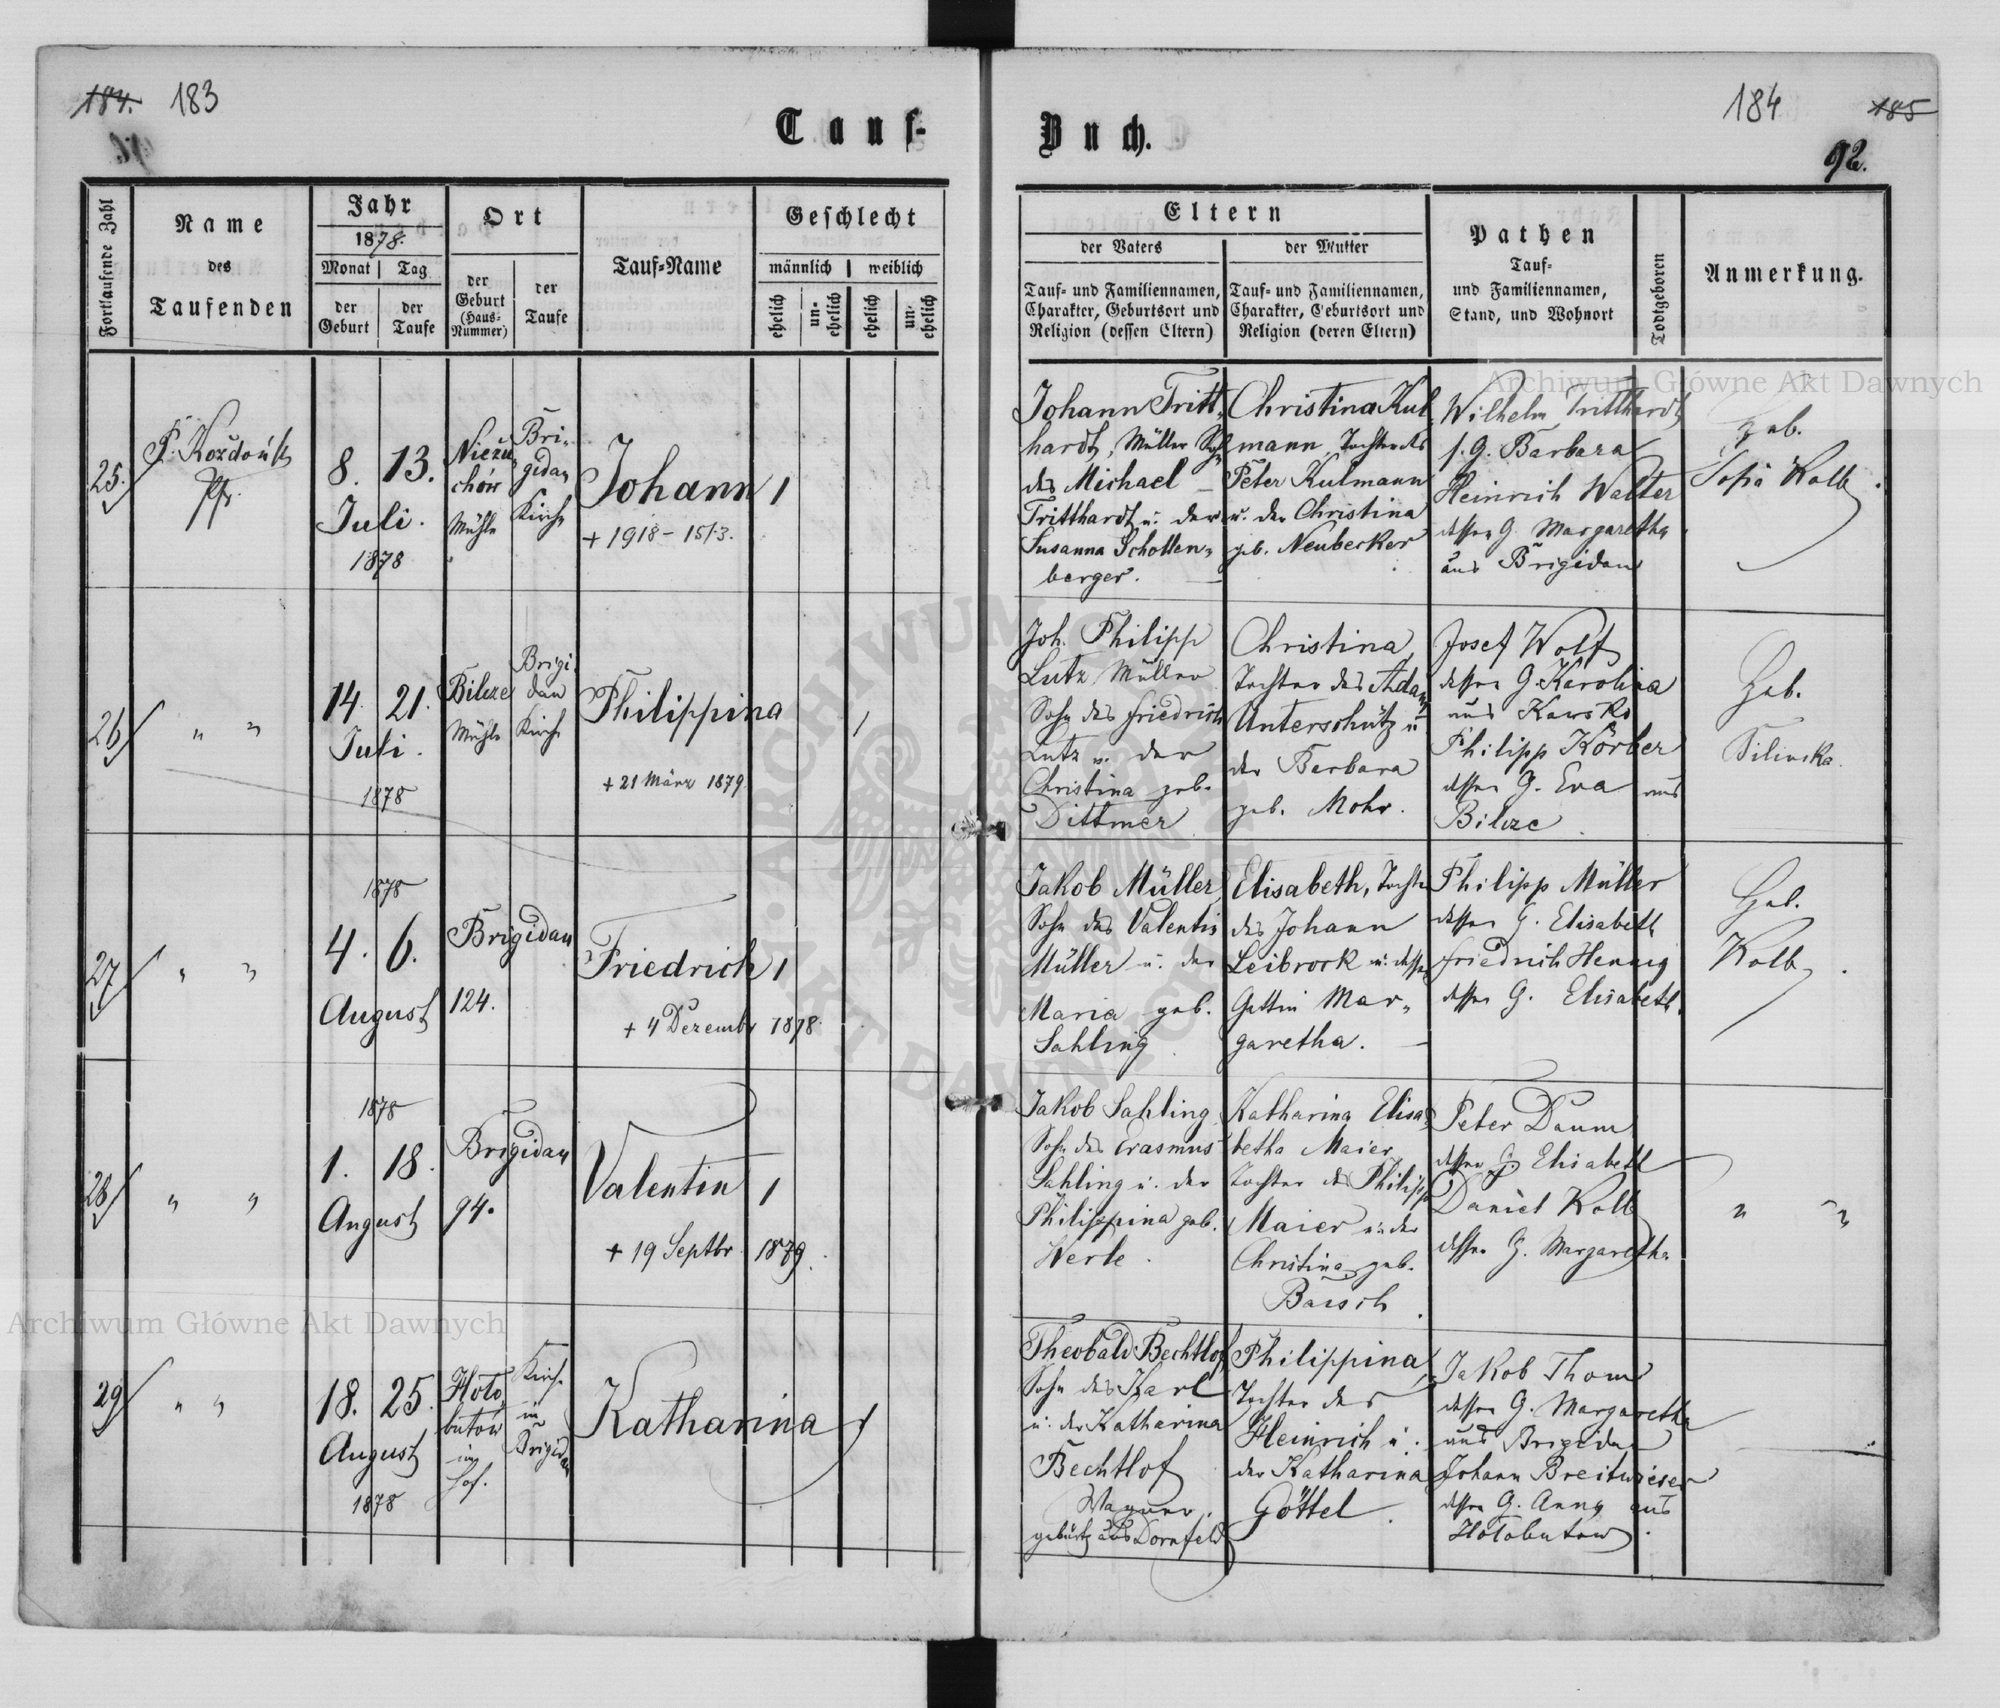 184. 183
Tauf-
Fortlaufende Zahl
Name
des
Taufenden
Jahr
1878.
Monat Tag
der Geburt
der Taufe
Ort
der
Geburt
(Haus-
Nummer)
der
Taufe
Tauf-Name
Geschlecht
männlich weiblich
ehelich
un-
ehelich
ehelich
un-
ehelich
25.
Pfr.
8. 13.
Juli.
1878
Nieżu
chów
Mühle
Bri-
gidau
Kirche
Johann 1
+ 1918 - 15/3.
26
" "
14. 21.
Juli.
1878
Bilcze
Mühle
Brigi
dau
Kirche
Philippina
1
+ 21 März 1879
27
" "
1878
4. 6.
August
Brigidau
124.
Friedrich 1
+ 4 Dezember 1878
28
" "
1878
1. 18.
August
Brigidau
94.
Valentin 1
+ 19 Septbr. 1879.
29
" "
18. 25.
August
1878
Hoło
butów
im
Hof.
Kirche
in
Brigidau
Katharina 1
184 185
92.
Buch.
Eltern
der Vaters
Tauf- und Familiennamen,
Charakter, Geburtsort und
Religion (dessen Eltern)
der Mutter
Tauf- und Familiennamen,
Charakter, Geburtsort und
Religion (deren Eltern)
Pathen
Tauf-
und Familiennamen,
Stand, und Wohnort
Todtgeboren
Anmerkung.
Johann Tritt-
hardt, Müller Sohn
des Michael
Tritthardt u. der
Susanna Schollen-
berger.
Christina Kul
mann, Tochter des
Peter Kulmann
u. der Christina
geb. Neubecker
Wilhelm Tritthardt
s. G. Barbara
Heinrich Walter
dessen G. Margaretha
aus Brigidau
Heb.
Sofia Kolb.
Joh. Philipp
Lutz Müller
Sohn des Friedrich
Lutz u. der
Christina geb.
Dittmer
Christina,
Tochter des Adam
Unterschütz u.
der Barbara
geb. Mohr.
Josef Wolf
dessen G. Karolina
aus
Philipp Körber
dessen G. Eva aus
Bilcze
Heb.
Jakob Müller,
Sohn des Valentin
Müller u. der
Maria geb.
Sahling
Elisabeth, Tochter
des Johann
Leibrock u. dessen
Gattin Mar-
garetha.
Philipp Müller
dessen G. Elisabeth
Friedrich Hennig
dessen G. Elisabeth.
Heb.
Kolb.
Jakob Sahling
Sohn des Erasmus
Sahling u. der
Philippina geb.
Werle.
Katharina Elisa
betha Maier,
Tochter des Philipp
Maier u. der
Christina geb.
Bausch.
Peter Daum
dessen G. Elisabeth
Daniel Kolb
dessen G. Margaretha
" "
Theobald Bechtlof,
Sohn des Karl
u. der Katharina
Bechtlof
Wagner.
gebürtig aus Dornfeld
Philippina,
Tochter des
Heinrich u.
der Katharina
Göttel.
Jakob Thom
dessen G. Margaretha
aus Brigidau
Johann Breitwieser
dessen G. Anna aus
Hołobutow.
Archiwum Główne Akt Dawnych
Archiwum Główne Akt Dawnych